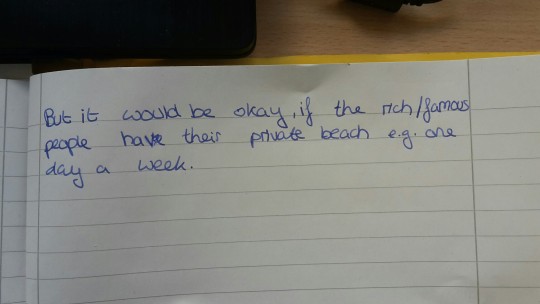 But it would be okay, if the rich/famous
people have their private beach e.g. one
day a week.